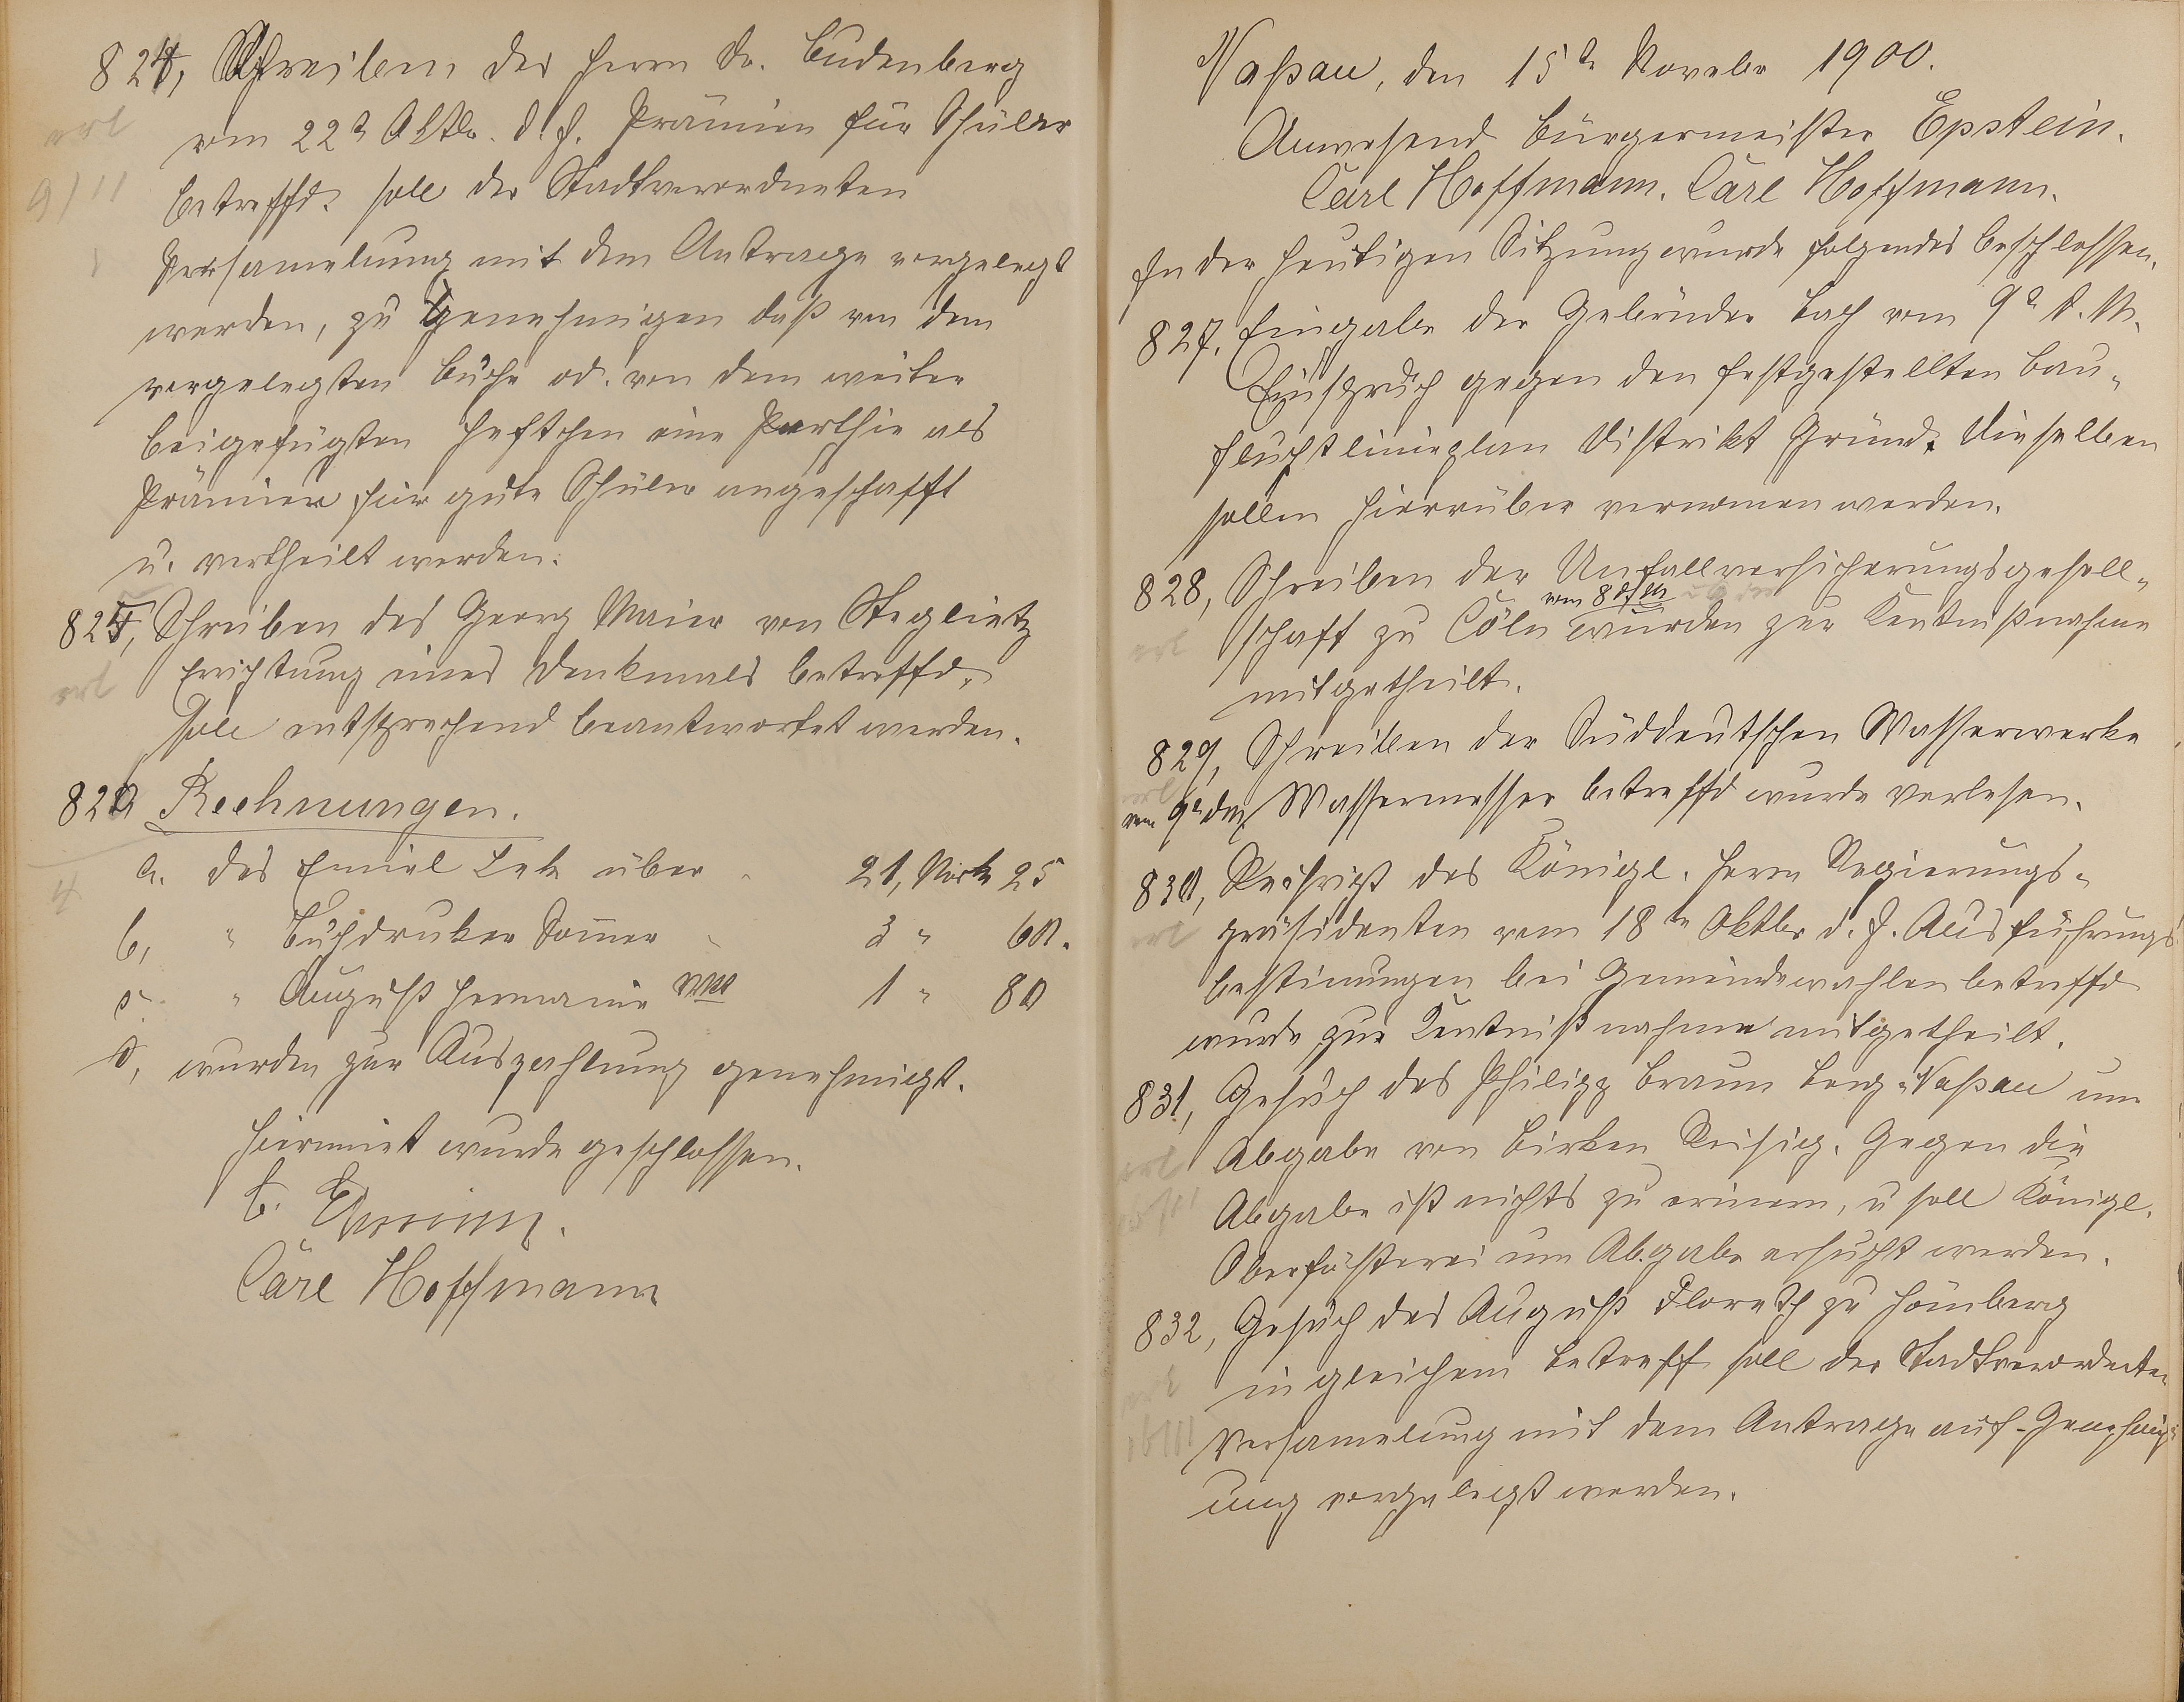 824, Schreiben des Herrn Dr. Budenberg
erl
vom 22t Oktbr. d. J. Prämien für Schüler
9/11
betreffd. soll der Stadtverordneten
Versamelung mit dem Antrage vorgelegt
werden, zu genehmigen daß von dem
vorgelegten Buche od. von dem weiter
beigefügten Heftchen eine Parthie als
Prämien für gute Schüler angeschafft
u. vertheilt werden.
825, Schreiben des Georg Maier von Steglietz
erl
Errichtung eines Denkmals betreffd.
soll entsprechend beantwortet werden.
826 Rechnungen.
a. des Emiel Lek über 21, Mark 25
b, " Buchdruker Sommer " 3 " 60.
c. " August Hermanie 1 " 80
d, wurden zur Auszahlung genehmigt.
Hiermiet wurde geschlossen.
Carl Hoffmann
Naßau, den 15te Novebr 1900.
Anwesend Bürgermeister Epstein.
Carl Hoffmann. Carl Hoffmann.
In der heutigen Sitzung wurde folgendes beschlossen.
827, Eingabe der Gebrüder Bach vom 9t d. M.
Einspruch gegen den festgestellten Bau-
fluchtlinieplan Distrikt Grund. Dieselben
sollen hierrüber vernomen werden.
828, Schreiben der Unfallversicherungsgesell-
vom 8 d M
schaft zu Cöln wurden zur Kentnißnahme
erl
mitgetheilt.
829, Schreiben der Süddeutschen Wasserwerke
erl
vom 9t dM Wassermesser betreffd wurde verlesen.
830, Rescript des Königl. Herrn Regierungs-
präsidenten vom 18te Oktbr d. J. Ausführungs
erl
bestimungen bei Gemeindewahlen betreffd
wurde zur Kentnißnahme mitgetheilt.
831, Gesuch des Philipp Braun Berg-Naßau um
Abgabe von Birken Reisig. Gegen die
erl
Abgabe ist nichts zu erinern, u soll Königl.
Oberförsterei um Abgabe ersucht werden.
832, Gesuch des August Floreth zu Hömberg
in gleichem Betreff soll der Stadtverordneten
Versamelung mit dem Antrage auf Genehmig-
ung vorgelegt werden.